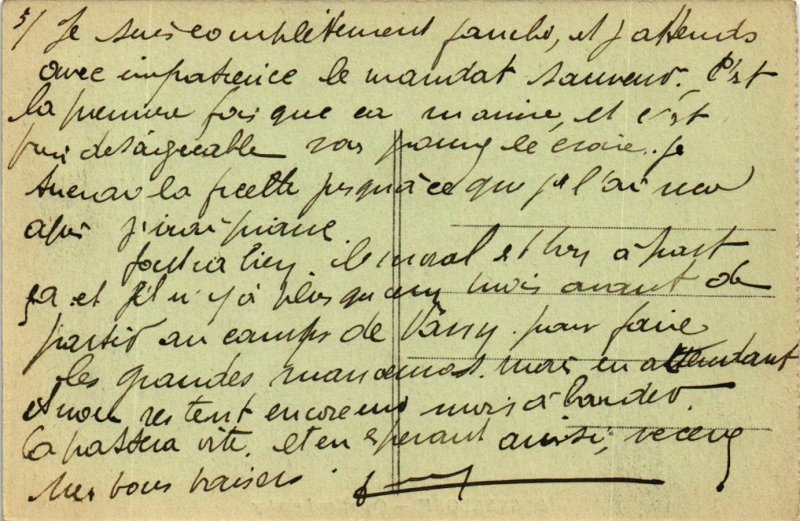 5/ Je suis complètement fauché, et j'attends
avec impatience le mandat sauveur. C'est
la première fois que ca m'arrive, et c'est
desagreable vous pouvez le croire. je
la ficelle jusqu'à ce que je l'ai reçu
après j'irai
bien. le moral est bon à part
ça. et il n'y a plus qu'un mois avant de
partir au camps de Vassy. pour faire
les grandes manoeuvres. mais en attendant
nous restent encore un mois à
Ca passera vite. et en espérant ainsi, recevez
mes bons baisers.